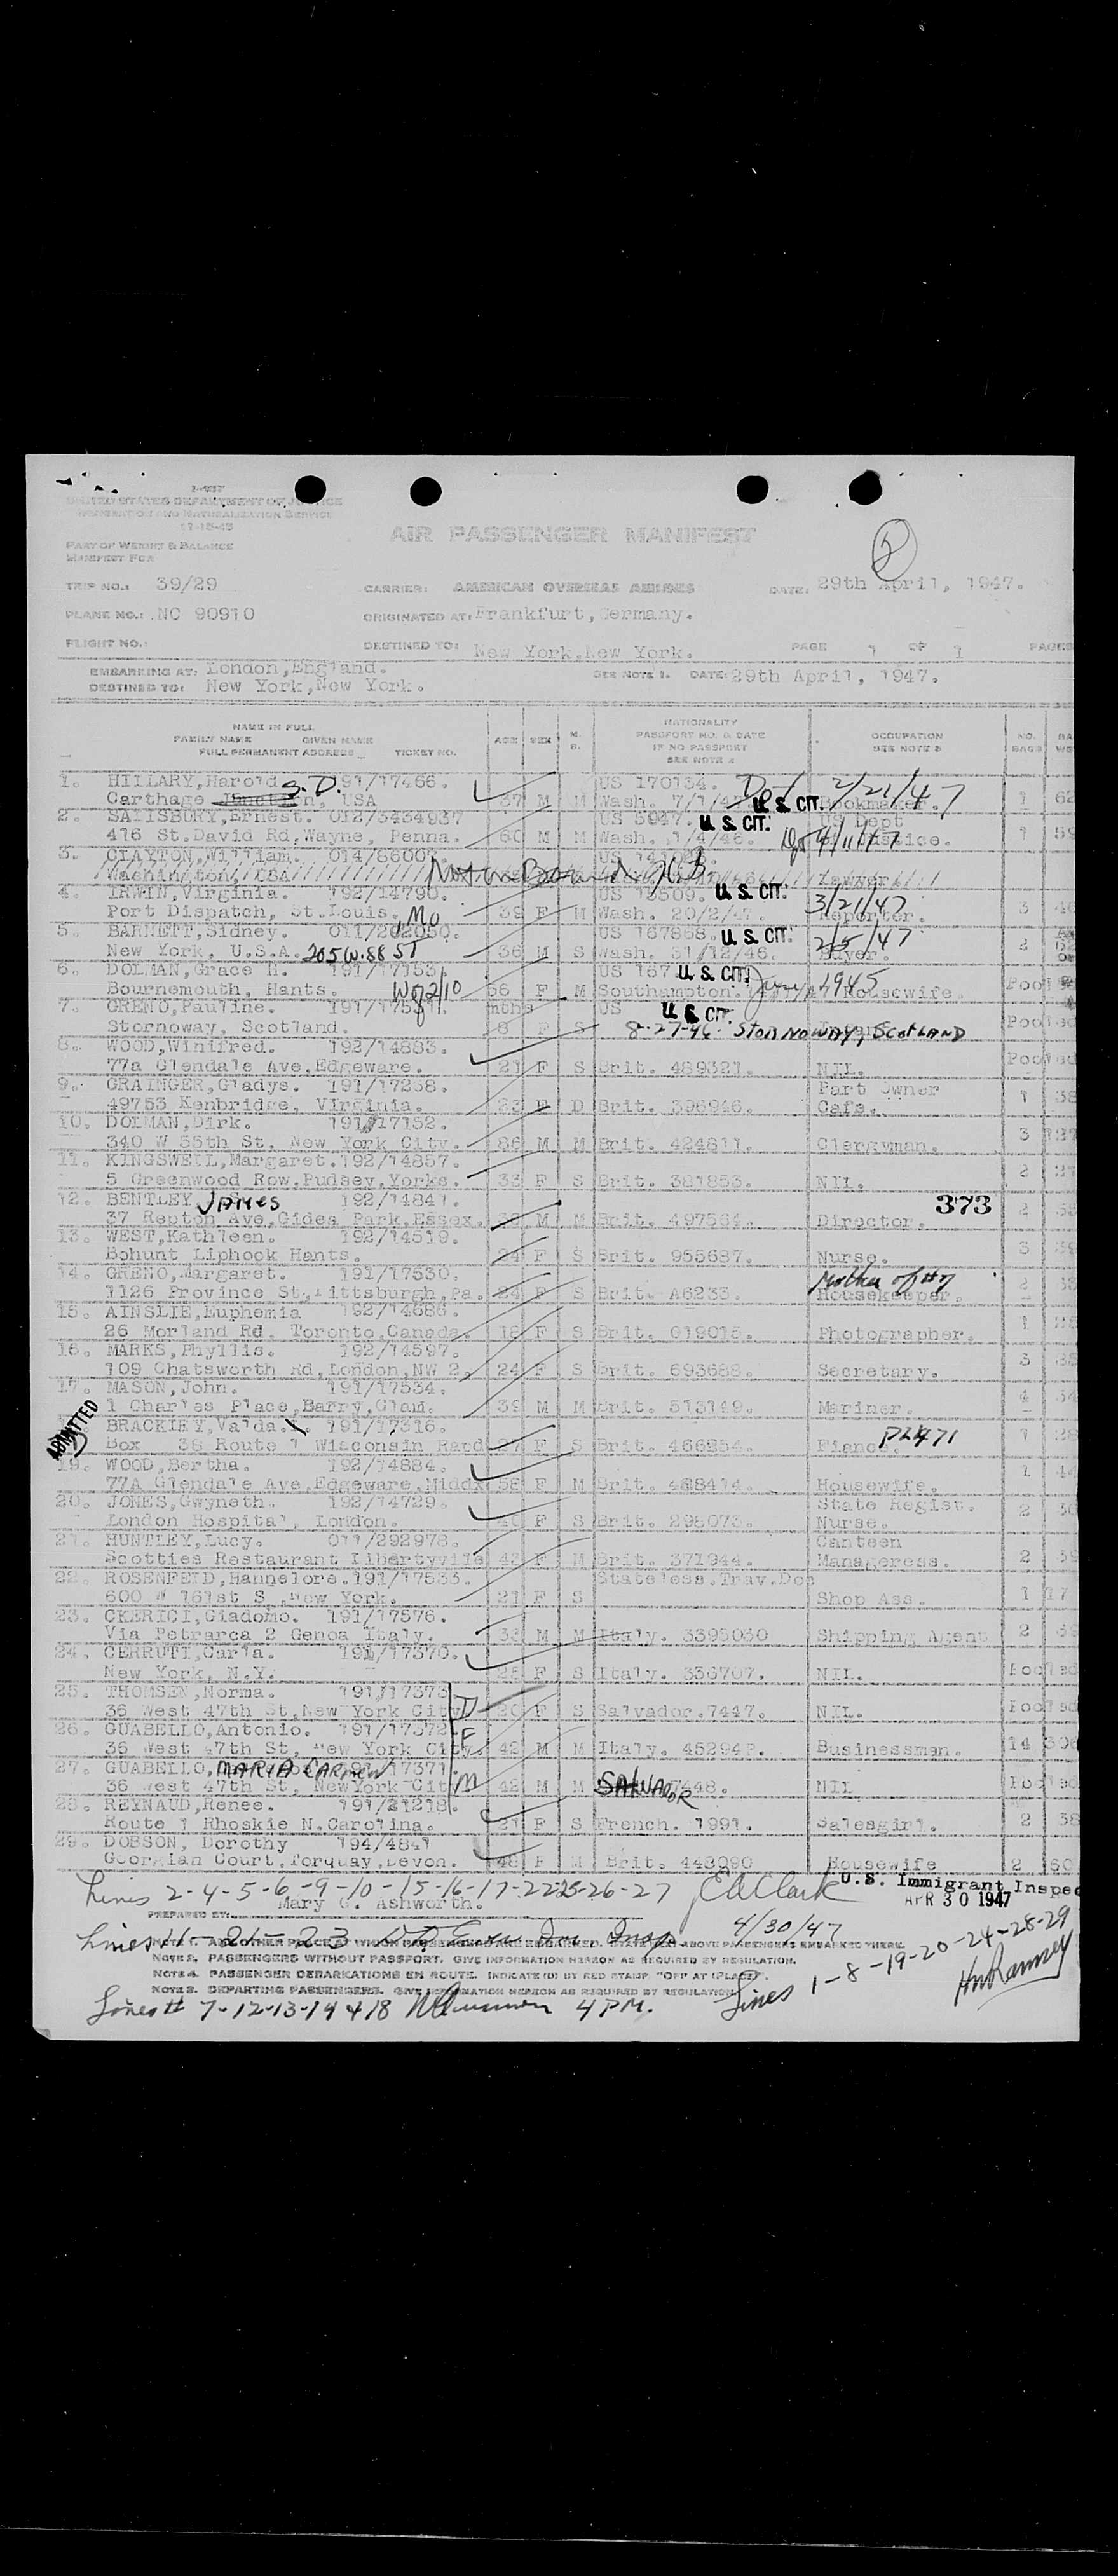 I-497
UNITED STATES DEPARTMENT OF JUSTICE
IMMIGRATION AND NATURALIZATION SERVICE
11-15-45
PART OF WEIGHT & BALANCE
MANIFEST FOR
AIR PASSENGER MANIFEST
TRIP NO.: 39/29 CARRIER: AMERICAN OVERSEAS AIRLINES DATE: 29th April, 1947.
PLANE NO.: NC 90910 ORIGINATED AT: Frankfurt, Germany.
FLIGHT NO.: DESTINED TO: New York, New York. PAGE 1 OF 1 PAGES
EMBARKING AT: London, England. SEE NOTE 1. DATE: 29th April, 1947.
DESTINED TO: New York, New York.
NAME IN FULL
FAMILY NAME GIVEN NAME
FULL PERMANENT ADDRESS TICKET NO.
AGE SEX M. S.
NATIONALITY
PASSPORT NO. & DATE
IF NO PASSPORT
SEE NOTE 2
OCCUPATION
SEE NOTE 3
NO. BAGS
1. HILLARY, Harold. 191/17466. US 170134. 2/21/47
Carthage S.D., USA 37 M M Wash. U. S. CIT. Bookmaker. 1 62
2. SALISBURY, Ernest. 01273434937 US 5947. U. S. CIT. US Dept
416 St. David Rd, Wayne, Penna. 60 M M Wash. 1/4/46. 4/11/47 Justice. 1 59
3. CLAYTON, William. 014/8800 Not on Board
Washington, USA Lawyer
4. IRWIN, Virginia. 192/14790. US U. S. CIT. 3/21/47
Port Dispatch, St. Louis. Mo 39 F M Wash. 20/2/47. Reporter. 3
5. BARNETT, Sidney. US 167868. U. S. CIT. 2/5/47
New York, U.S.A. 205 W. 88 ST 36 M S Wash. 31/12/46. Buyer. 2
6. DOLMAN, Grace H. 191/17153. US U. S. CIT. June 1945
Bournemouth, Hants. 56 F M Southampton. Housewife. Pooled
7. GRENO, Pauline. mths US U. S. CIT.
Stornoway, Scotland. 8 F S 8-27-46 STORNOWAY, SCOTLAND Pooled
8. WOOD, Winifred. 192/14883.
77a Glendale Ave, Edgeware. 21 F S Brit. 489321. NIL. Pooled
9. GRAINGER, Gladys. 191/17238. Part Owner
49753 Kenbridge, Virginia. 23 F D Brit. 396946. Cafe. 1 38
10. DOLMAN, Dirk. 191/17152.
340 W 55th St, New York City. 86 M M Brit. 424811. Clergyman. 3
11. KINGSWELL, Margaret. 192/14857.
5 Greenwood Row, Pudsey, Yorks. 33 F S Brit. 381853. NIL. 2
12. BENTLEY, JAMES 192/14841. 373
37 Repton Ave, Gidea Park, Essex. M M Brit. 497564. Director. 2
13. WEST, Kathleen. 192/14519.
Bohunt Liphook Hants. 24 F S Brit. 955687. Nurse. 3
14. GRENO, Margaret. 191/17530. Mother of #7
1126 Province St, Pittsburgh, Pa. 24 F S Brit. A6233. Housekeeper. 2
15. AINSLIE, Euphemia 192/14686.
26 Morland Rd. Toronto, Canada. 18 F S Brit. Photographer. 1
16. MARKS, Phyllis. 192/14597.
109 Chatsworth Rd, London, NW 2. 24 F S Brit. 693688. Secretary. 3
17. MASON, John. 191/17534.
1 Charles Place, Barry, Glam. 39 M M Brit. 513149. Mariner. 4 34
ADMITTED
BRACKLEY, Valda. 191/17316.
Box 38 Route 1 Wisconsin Rapd F S Brit. 466254. Fiance. P2471 1
19. WOOD, Bertha. 192/14884.
77A Glendale Ave, Edgeware, Middx 58 F M Brit. 488414. Housewife. 1 44
20. JONES, Gwyneth. 192/14729. State Regist.
London Hospital, London. F S Brit. 298073. Nurse. 2 30
21. HUNTLEY, Lucy. 011/292978. Canteen
Scotties Restaurant Libertyville 43 F M Brit. 371944. Manageress. 2 59
22. ROSENFELD, Hannelore. 191/17533. Stateless. Trav. Doc
600 W 161st S, New York. 21 F S Shop Ass. 1 17
23. CKERICI, Giadomo. 191/17576.
Via Petrarca 2 Genoa Italy. 33 M M Italy. 3395030 Shipping Agent 2
24. CERRUTI, Carla. 191/17370.
New York, N.Y. F S Italy. 336707. NIL. Pooled
25. THOMSEN, Norma. 191/17373 D
36 West 47th St, New York City 20 F S Salvador. 7447. NIL. Pooled
26. GUABELLO, Antonio. 191/17372 F
36 West 47th St, New York City. 42 M M Italy. 45294P. Businessman. 14
27. GUABELLO, MARIA CARMEN 17371
36 West 47th St, NewYork Cit M 42 M M SALVADOR 7448. NIL Pooled
28. REYNAUD, Renee. 191/21218.
Route 1 Rhoskie N. Carolina. 21 F S French. 1991. Salesgirl. 2 38
29. DOBSON, Dorothy 194/4841
Georgian Court, Torquay, Devon. 48 F M Brit. 443090 Housewife 2 60
Lines 2-4-5-6-9-10-15-16-17-22-25-26-27 E A Clark U.S. Immigrant Inspec
APR 30 1947
PREPARED BY: Mary G. Ashworth.
4/30/47
Lines 11-21-23
NOTE 2. PASSENGERS WITHOUT PASSPORT. GIVE INFORMATION HEREON AS REQUIRED BY REGULATION.
NOTE 4. PASSENGER DEBARKATIONS EN ROUTE. INDICATE (IN) BY RED STAMP "OFF AT (PLACE)".
NOTE 5. DEPARTING PASSENGERS. GIVE INFORMATION HEREON AS REQUIRED BY REGULATION.
Lines 1-8-19-20-24-28-29
HW Ramsey
Lines # 7-12-13-14 & 18 4 PM.